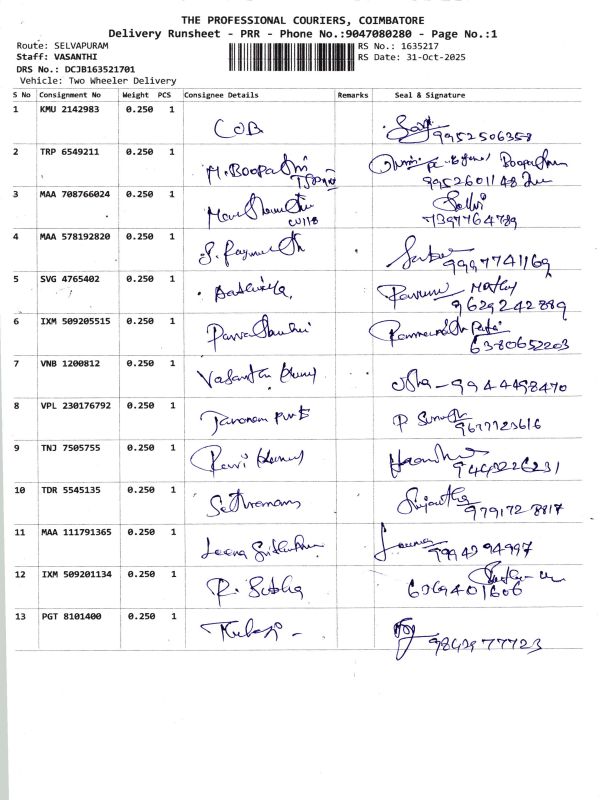 THE PROFESSIONAL COURIERS, COIMBATORE
Delivery Runsheet - PRR - Phone No.:9047080280 - Page No.:1
Route: SELVAPURAM
RS No.: 1635217
Staff: VASANTHI
RS Date: 31-Oct-2025
DRS No.: DCJB163521701
Vehicle: Two Wheeler Delivery
S No Consignment No Weight PCS Consignee Details Remarks Seal & Signature
1 KMU 2142983 0.250 1 COB
9952506358
2 TRP 6549211 0.250 1 M. Boopathi
9952601148
3 MAA 708766024 0.250 1
7397764789
4 MAA 578192820 0.250 1
9997741169
5 SVG 4765402 0.250 1
9629242889
6 IXM 509205515 0.250 1
6380652203
7 VNB 1200812 0.250 1 Vasanth Kumar Usha - 9944498470
8 VPL 230176792 0.250 1
9677723616
9 TNJ 7505755 0.250 1 Ravi Kumar
10 TDR 5545135 0.250 1 Sethuraman Sujantha
9791728817
11 MAA 111791365 0.250 1 Leena
9994294997
12 IXM 509201134 0.250 1 R. Subha
6369401606
13 PGT 8101400 0.250 1
9842977723